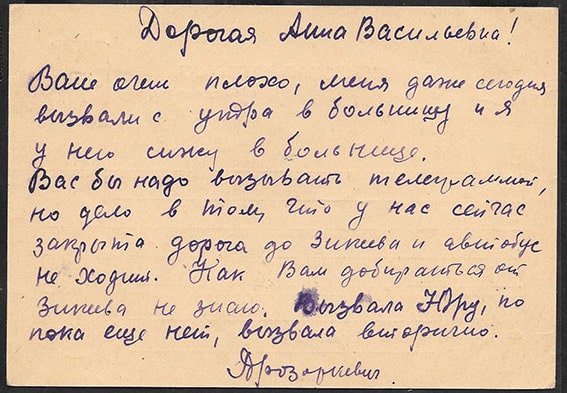 Дорогая Анна Васильевна!
Ване очен плохо, меня даже сегодня
вызвали с утра в больницу и я
у него сижу в больнице.
Вас бы надо вызывать телеграммой,
но дело в том, что у нас сейчас
закрыта дорога до Зикеева и автобус
не ходит. Как Вам добираться от
Зикеева не знаю. Вызвала Юру, но
пока еще нет, вызвала вторично.